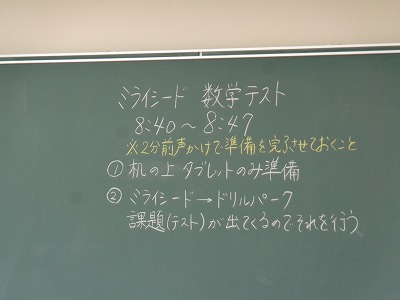 ミライシード 数学テスト
8:40～8:47
※2分前声かけで準備を完了させておくこと
① 机の上 タブレットのみ準備
② ミライシード→ドリルパーク
課題(テスト)が出てくるのでそれを行う